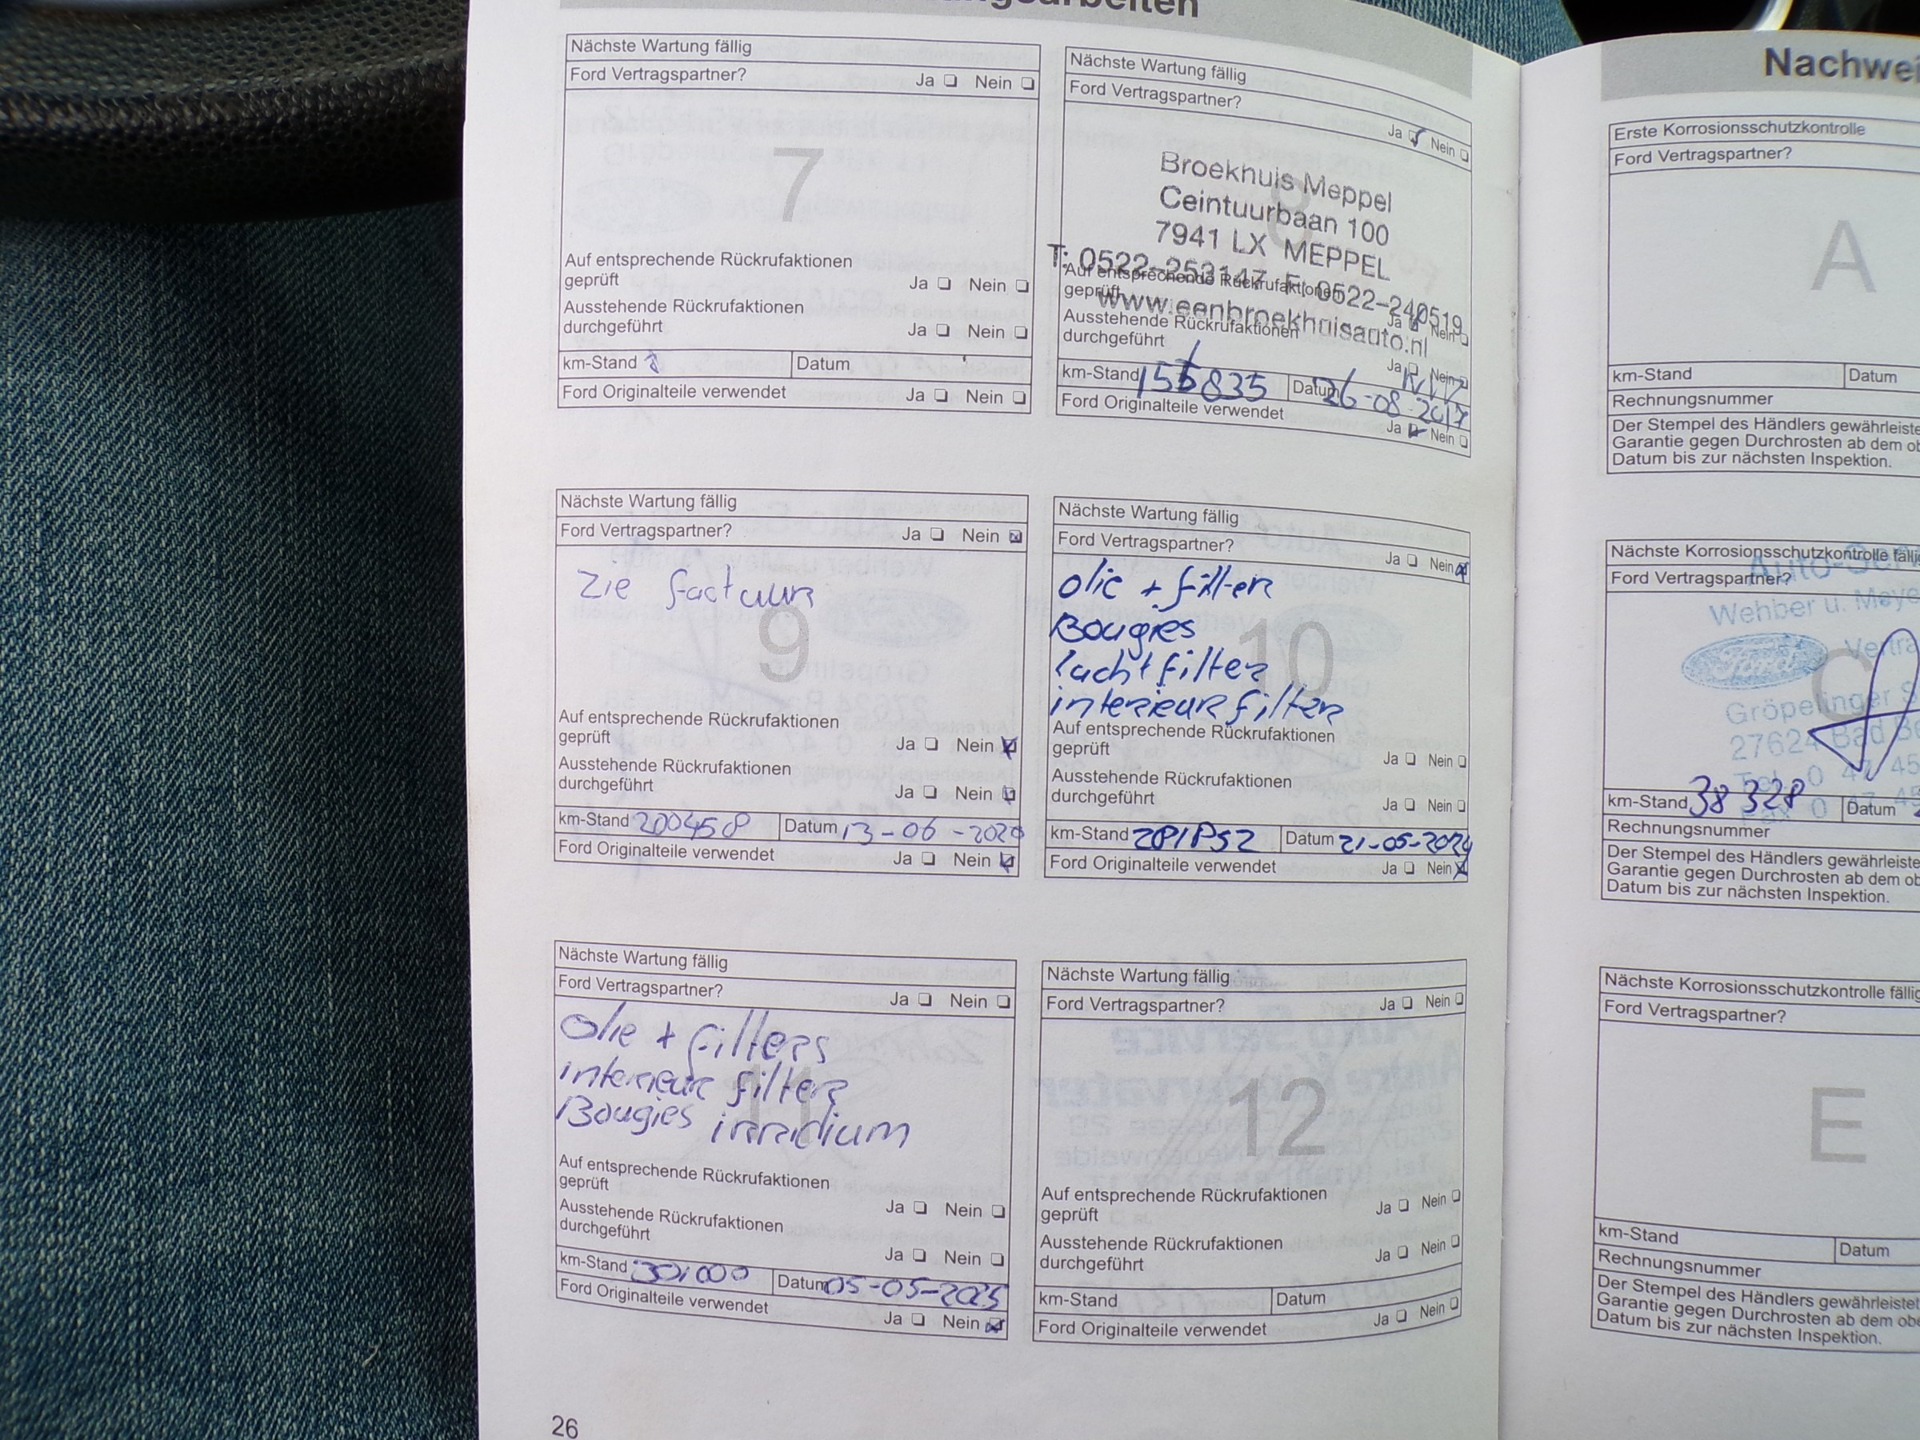 Nächste Wartung fällig
Ford Vertragspartner? Ja Nein
7
Auf entsprechende Rückrufaktionen
geprüft Ja Nein
Ausstehende Rückrufaktionen
durchgeführt Ja Nein
km-Stand Datum
Ford Originalteile verwendet Ja Nein
Nächste Wartung fällig
Ford Vertragspartner?
Ja Nein
8
Broekhuis Meppel
Ceintuurbaan 100
7941 LX MEPPEL
T: 0522-253147 F: 0522-240519
www.eenbroekhuisauto.nl
Auf entsprechende Rückrufaktionen
geprüft Ja Nein
Ausstehende Rückrufaktionen
durchgeführt
Ja Nein
km-Stand Datum 26-08-2017
Ford Originalteile verwendet
Ja Nein
Nächste Wartung fällig
Ford Vertragspartner? Ja Nein
zie factuur
9
Auf entsprechende Rückrufaktionen
geprüft Ja Nein
Ausstehende Rückrufaktionen
durchgeführt Ja Nein
km-Stand 200458 Datum 13-06-2020
Ford Originalteile verwendet Ja Nein
Nächste Wartung fällig
Ford Vertragspartner?
Ja Nein
olie + filter
Bougies
10
lucht filter
interieur filter
Auf entsprechende Rückrufaktionen
geprüft Ja Nein
Ausstehende Rückrufaktionen
durchgeführt Ja Nein
km-Stand 281852 Datum 21-05-2024
Ford Originalteile verwendet Ja Nein
Nächste Wartung fällig
Ford Vertragspartner? Ja Nein
Olie + filters
interieur filter
Bougies irridium
11
Auf entsprechende Rückrufaktionen
geprüft Ja Nein
Ausstehende Rückrufaktionen
durchgeführt Ja Nein
km-Stand 301000 Datum 05-05-2025
Ford Originalteile verwendet
Ja Nein
Nächste Wartung fällig
Ford Vertragspartner? Ja Nein
12
Auf entsprechende Rückrufaktionen
geprüft Ja Nein
Ausstehende Rückrufaktionen
durchgeführt Ja Nein
km-Stand Datum
Ford Originalteile verwendet Ja Nein
26
Nachwei
Erste Korrosionsschutzkontrolle
Ford Vertragspartner?
A
km-Stand Datum
Rechnungsnummer
Der Stempel des Händlers gewährleiste
Garantie gegen Durchrosten ab dem ob
Datum bis zur nächsten Inspektion.
Nächste Korrosionsschutzkontrolle fällig
Ford Vertragspartner?
Wehber u. Meye
Ford Vertra
C
Gröpelinger S
27624 Bad Be
Tel. 0 47 45
Fax 0 47 45
km-Stand 38 328 Datum
Rechnungsnummer
Der Stempel des Händlers gewährleiste
Garantie gegen Durchrosten ab dem ob
Datum bis zur nächsten Inspektion.
Nächste Korrosionsschutzkontrolle fällig
Ford Vertragspartner?
E
km-Stand Datum
Rechnungsnummer
Der Stempel des Händlers gewährleistet
Garantie gegen Durchrosten ab dem obe
Datum bis zur nächsten Inspektion.